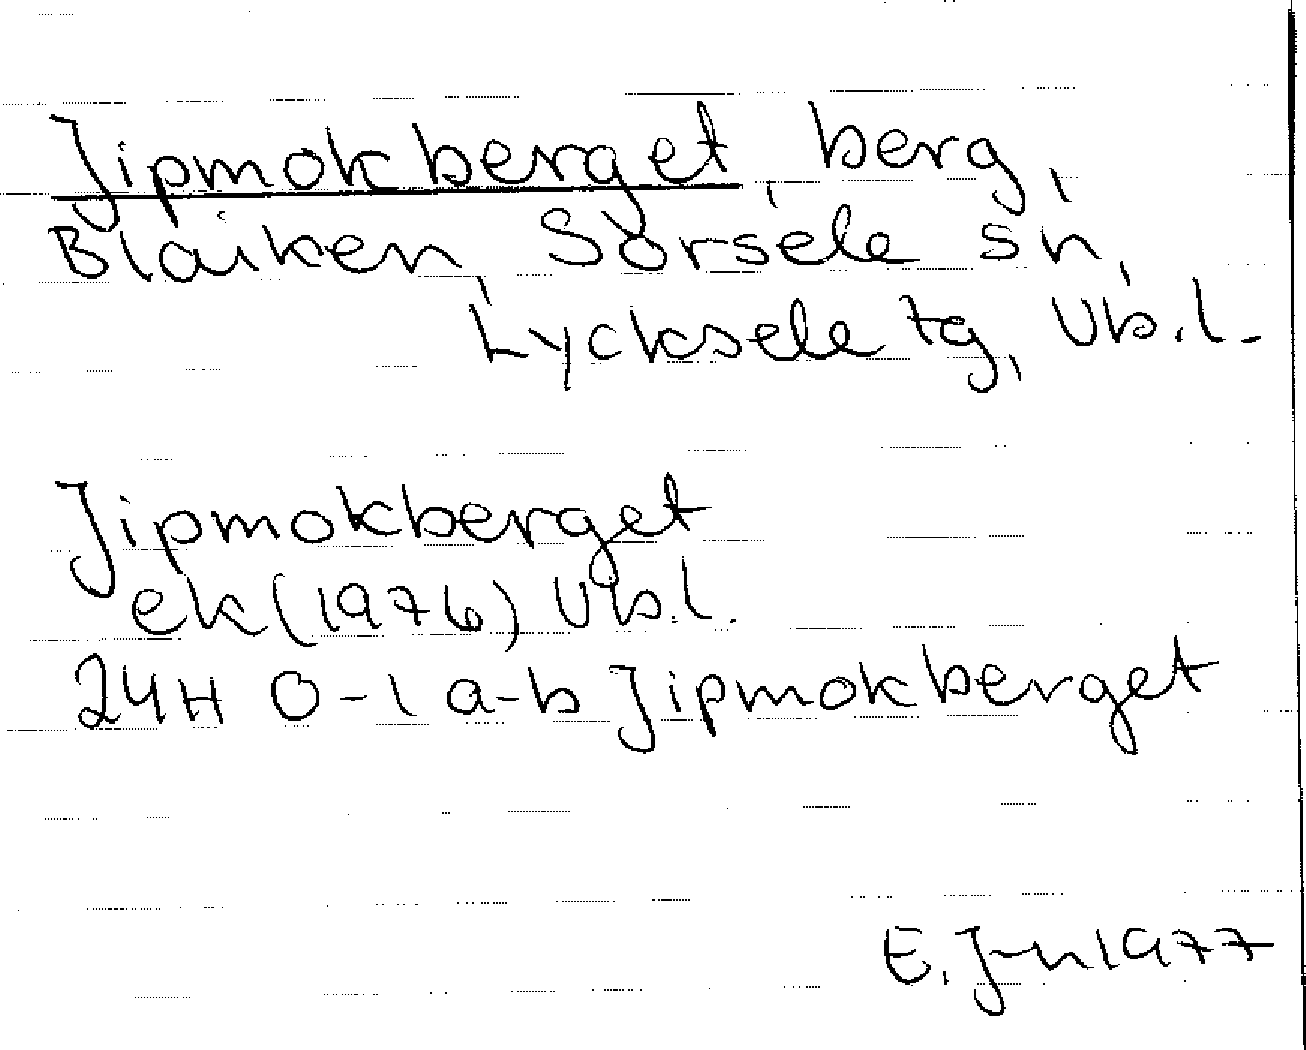 Jipmokberget, berg,
Blaiken, Sorsele sn,
Lycksele tg, Vb.l.
Jipmokberget
ek (1976) Vb.l.
24H 0-1 a-b Jipmokberget
E. J-n 1977